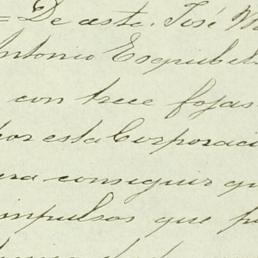 = De este. José M
Antonio Esquibel
con trece fojas
por esta Corporaci
ra conseguir q
impulsos que p